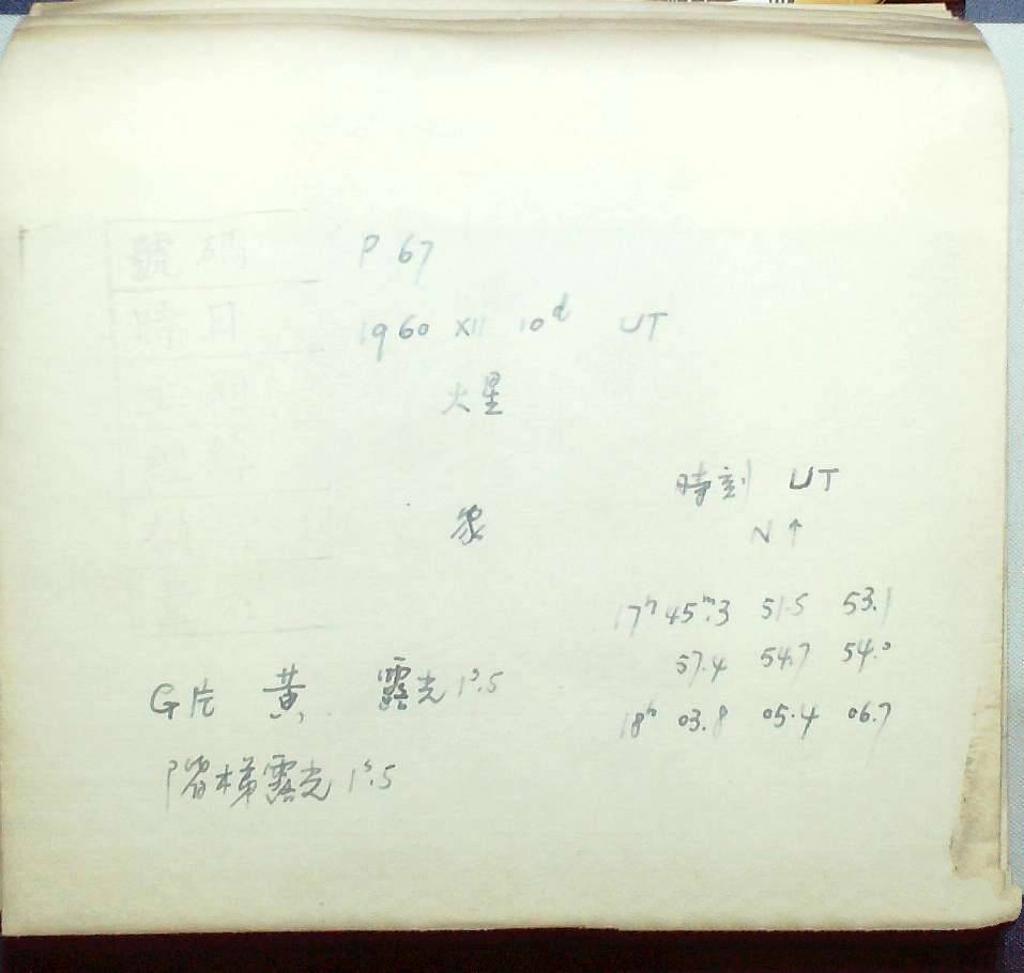 號碼 P 67
時日 1960 XII 10ᵈ UT
火星
時刻 UT
象
N ↑
17ʰ 45ᵐ.3 51.5 53.1
57.4 54.7 54.0
G片 黄, 露光 1ˢ.5
18ʰ 03.8 05.4 06.7
階梯露光 1ˢ.5